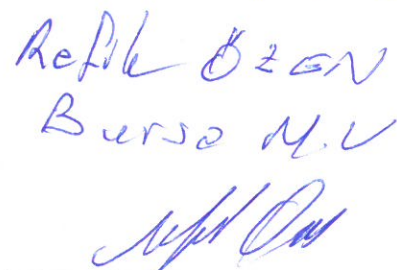 Refik ÖZEN
Bursa M.V